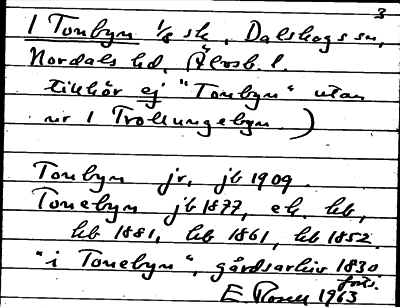 3
1 Tonbyn 1/8 sk, Dalskogs sn,
Nordals hd, Älvsb. l.
tillhör ej "Tonbyn" utan
nr 1 Trollungebyn.)
Tonbyn jr, jb 1909.
Tonebyn jb 1877, ek. kb,
kb 1881, kb 1861, kb 1852.
"i Tonebyn", gårdsarkiv 1830
forts.
E 1963